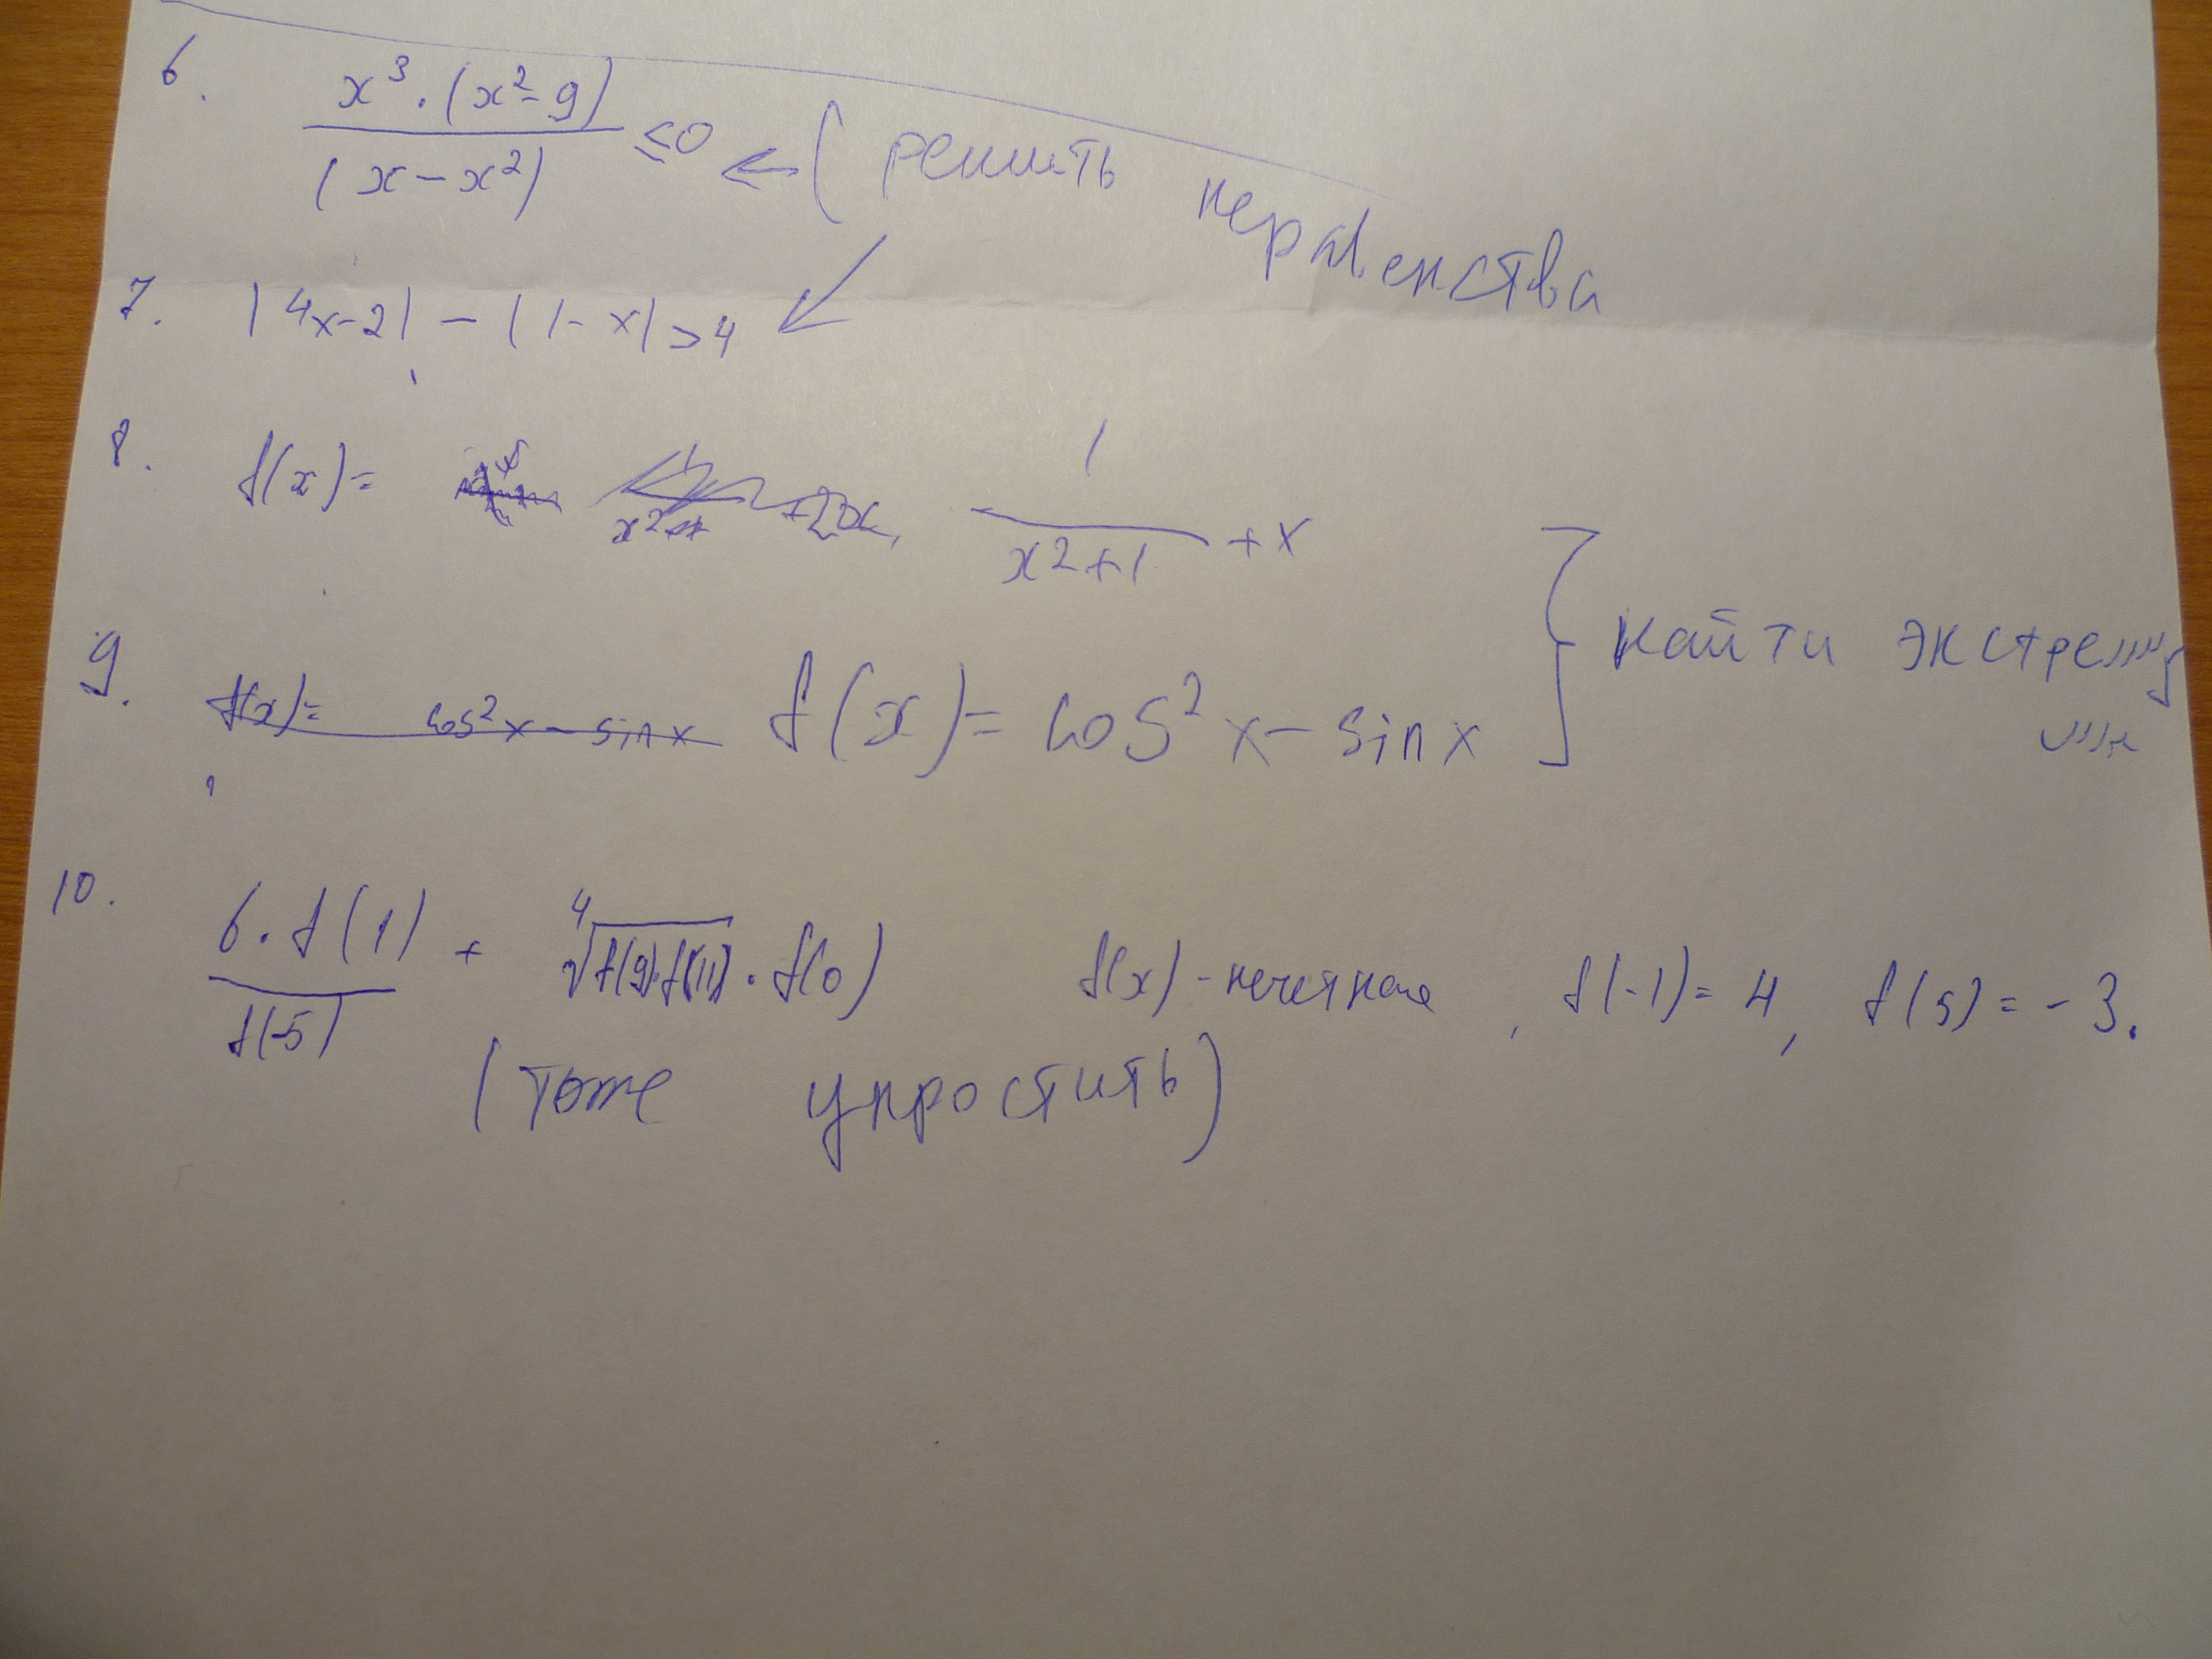 6. x³·(x²-9) / (x-x²) ≤0 ← (решить неравенства
7. |4x-2| - |1-x| > 4
8. f(x)= 1 / (x²+1) + x
9. f(x)= cos²x - sinx f(x)= cos²x - sinx } найти экстремумы
10. 6·f(1) / f(-5) + ⁴√f(9)·f(11) · f(0) f(x) - нечетная, f(-1)=4, f(5)=-3.
(тоже упростить)